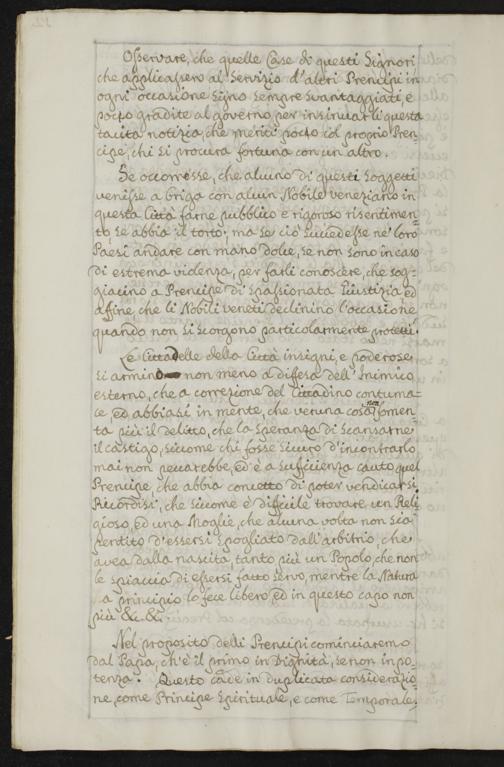 Osservare, che quelle Case di questi Signori
che applicassero al Servizio d'altri Prencipi in
ogni occasione siano sempre svantaggiati, e
poco gradite al governo, per insinuarli questa
tacita notizia, che meriti poco col proprio Pren-
cipe, chi si procura fortuna con un altro.
Se occorresse, che alcuno di questi Soggetti
venisse a briga con alcun Nobile veneziano in
questa Città farne pubblico e rigoroso risentimen-
to, se abbia il torto; ma se ciò succedesse ne' loro
Paesi andare con mano dolce, se non sono in caso
di estrema violenza, per farli conoscere, che sog-
giacino a Prencipe di spassionata Giustizia ed
affine che li Nobili veneti declinino l'occasione
quando non si scorgono particolarmente protetti.
Le Cittadelle della Città insigni, e poderose
si armino non meno a difesa dell'Inimico
esterno, che a correzione del Cittadino contuma-
ce ed abbiasi in mente, che veruna cosa non fomen-
ta più il delitto, che la speranza di scansarne
il castigo, siccome chi fosse sicuro d'incontrarlo
mai non peccarebbe, ed è a sufficienza cauto quel
Prencipe che abbia concetto di poter vendicarsi.
Ricordisi, che siccome è difficile trovare un Reli-
gioso, ed una Moglie, che alcuna volta non sia
pentito d'essersi spogliato dall'arbitrio, che
avea dalla nascita, tanto più un Popolo, che non
le spiaccia di essersi fatto servo, mentre la Natura
a principio lo fece libero ed in questo capo non
più &c. &c.
Nel proposito delli Prencipi cominciaremo
dal Papa, ch'è il primo in Dignità, se non in po-
tenza. Questo cade in duplicata considerazio-
ne, come Principe Spirituale, e come Temporale,